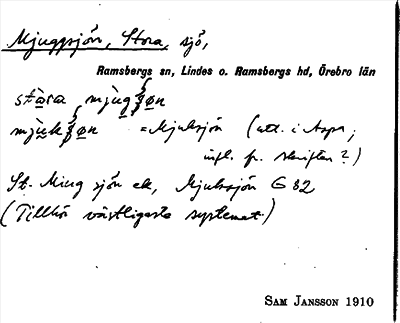 Mjuggsjön, Stora, sjö,
Ramsbergs sn, Lindes o. Ramsbergs hd, Örebro län
stòra mjùgʃøn
mjùkʃøn = Mjuksjön (utt. i Aspa;
infl. fr. skriften?)
St. Miug sjön ek, Mjuksjön G 82
(Tillhör västligaste systemet)
SAM JANSSON 1910